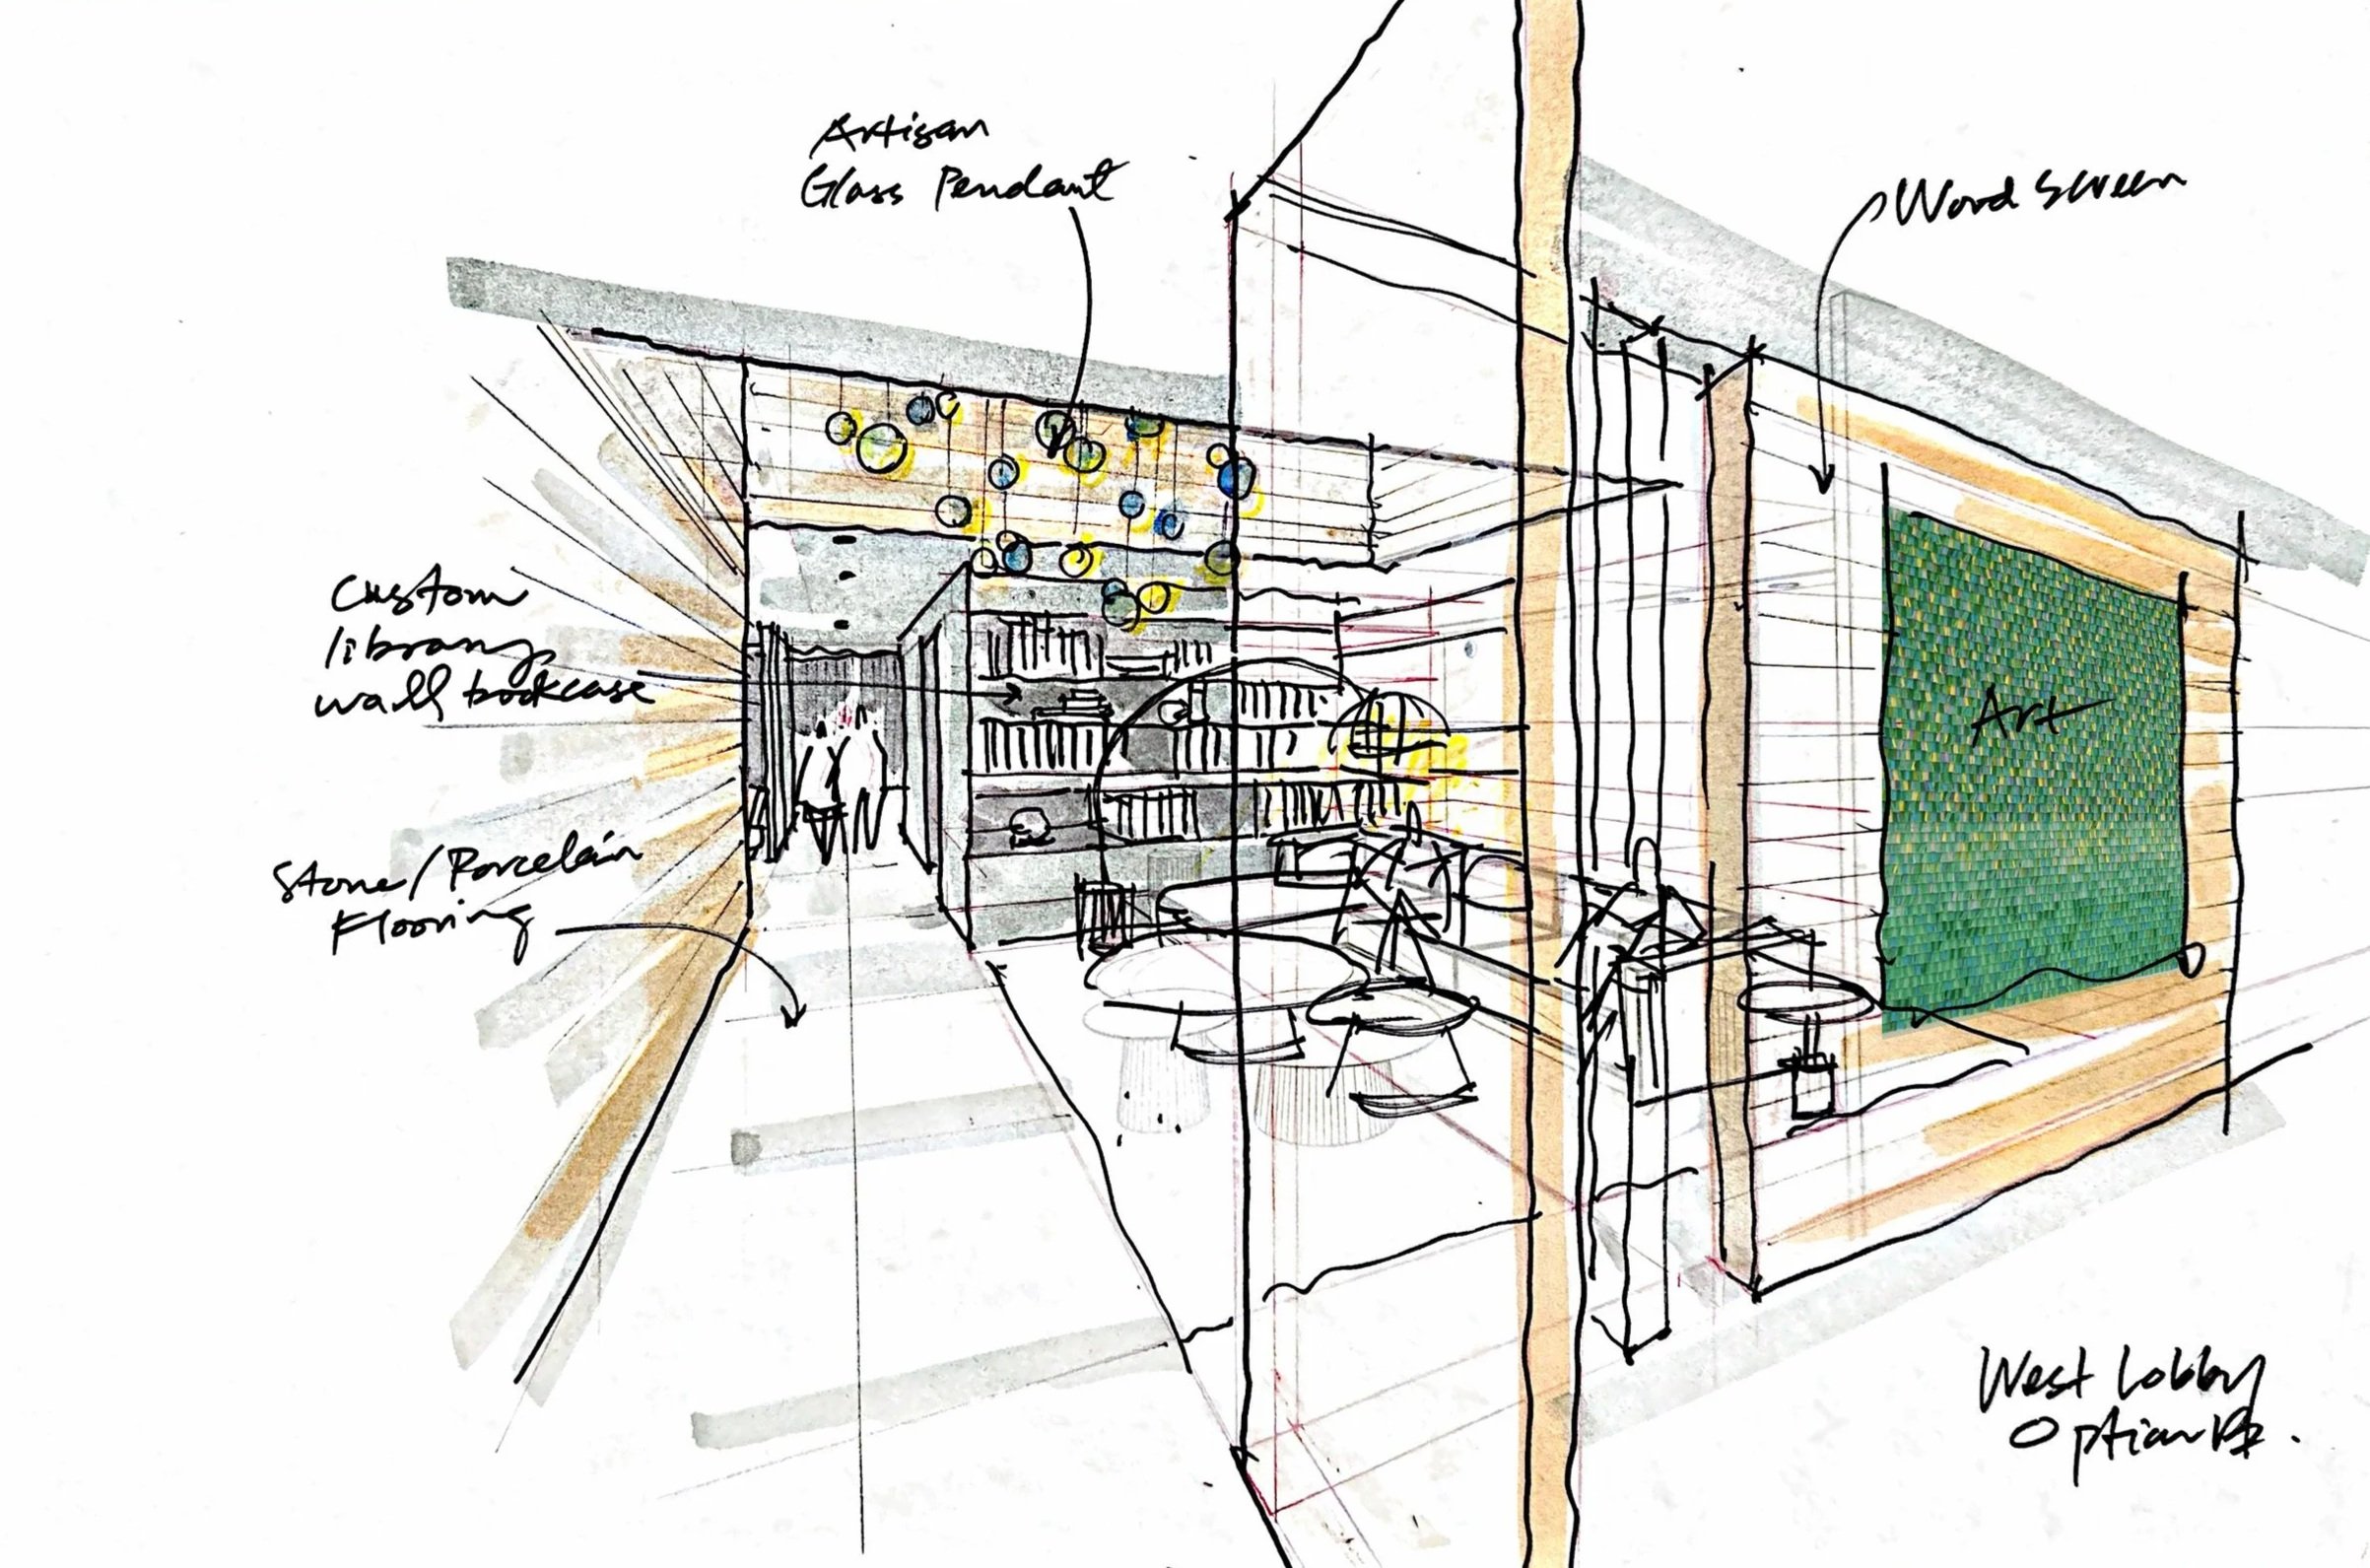 Artisan
Glass Pendant
Wood Screen
Custom
library
wall bookcase
Stone/Porcelain
Flooring
Art
West Lobby
Option